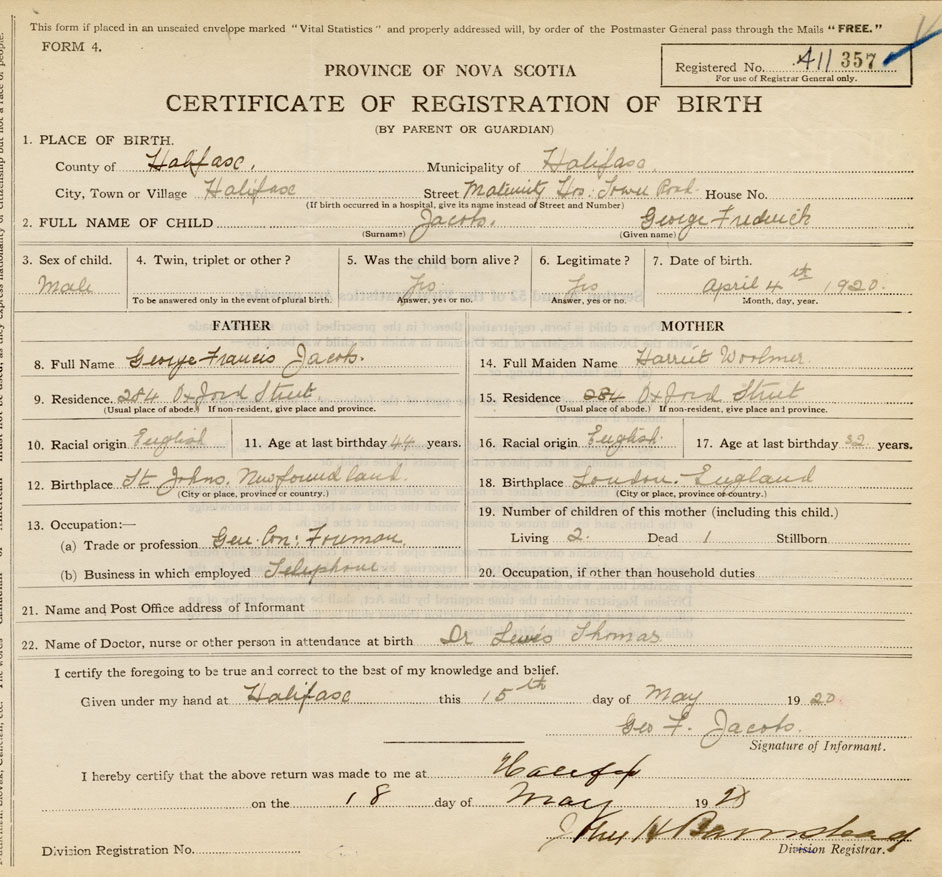 This form if placed in an unsealed envelope marked "Vital Statistics" and properly addressed will, by order of the Postmaster General pass through the Mails "FREE."
FORM 4.
Registered No. 411 357
For use of Registrar General only.
PROVINCE OF NOVA SCOTIA
CERTIFICATE OF REGISTRATION OF BIRTH
(BY PARENT OR GUARDIAN)
1. PLACE OF BIRTH.
County of Halifax. Municipality of Halifax.
City, Town or Village Halifax Street Maternity Hos: Tower Road. House No.
(If birth occurred in a hospital, give its name instead of Street and Number)
2. FULL NAME OF CHILD Jacobs. George Fredrick
(Surname) (Given name)
3. Sex of child. 4. Twin, triplet or other? 5. Was the child born alive? 6. Legitimate? 7. Date of birth.
Male Yes Yes April 4th 1920.
To be answered only in the event of plural birth. Answer, yes or no. Answer, yes or no. Month, day, year.
FATHER MOTHER
8. Full Name George Francis Jacobs. 14. Full Maiden Name Harriet Woolmer.
9. Residence. 284 Oxford Street. 15. Residence 284 Oxford Street
(Usual place of abode.) If non-resident, give place and province. (Usual place of abode.) If non-resident, give place and province.
10. Racial origin English 11. Age at last birthday 44 years. 16. Racial origin English. 17. Age at last birthday 32 years.
12. Birthplace St Johns. Newfoundland. 18. Birthplace London. England
(City or place, province or country.) (City or place, province or country.)
13. Occupation:— 19. Number of children of this mother (including this child.)
(a) Trade or profession Gen. Con: Foreman. Living 2. Dead 1 Stillborn
(b) Business in which employed Telephone 20. Occupation, if other than household duties
21. Name and Post Office address of Informant
22. Name of Doctor, nurse or other person in attendance at birth Dr Lewis Thomas.
I certify the foregoing to be true and correct to the best of my knowledge and belief.
Given under my hand at Halifax this 15th day of May 1920.
Geo F. Jacobs.
Signature of Informant.
I hereby certify that the above return was made to me at Halifax
on the 18 day of May 1920
John H Barnstead
Division Registrar.
Division Registration No.